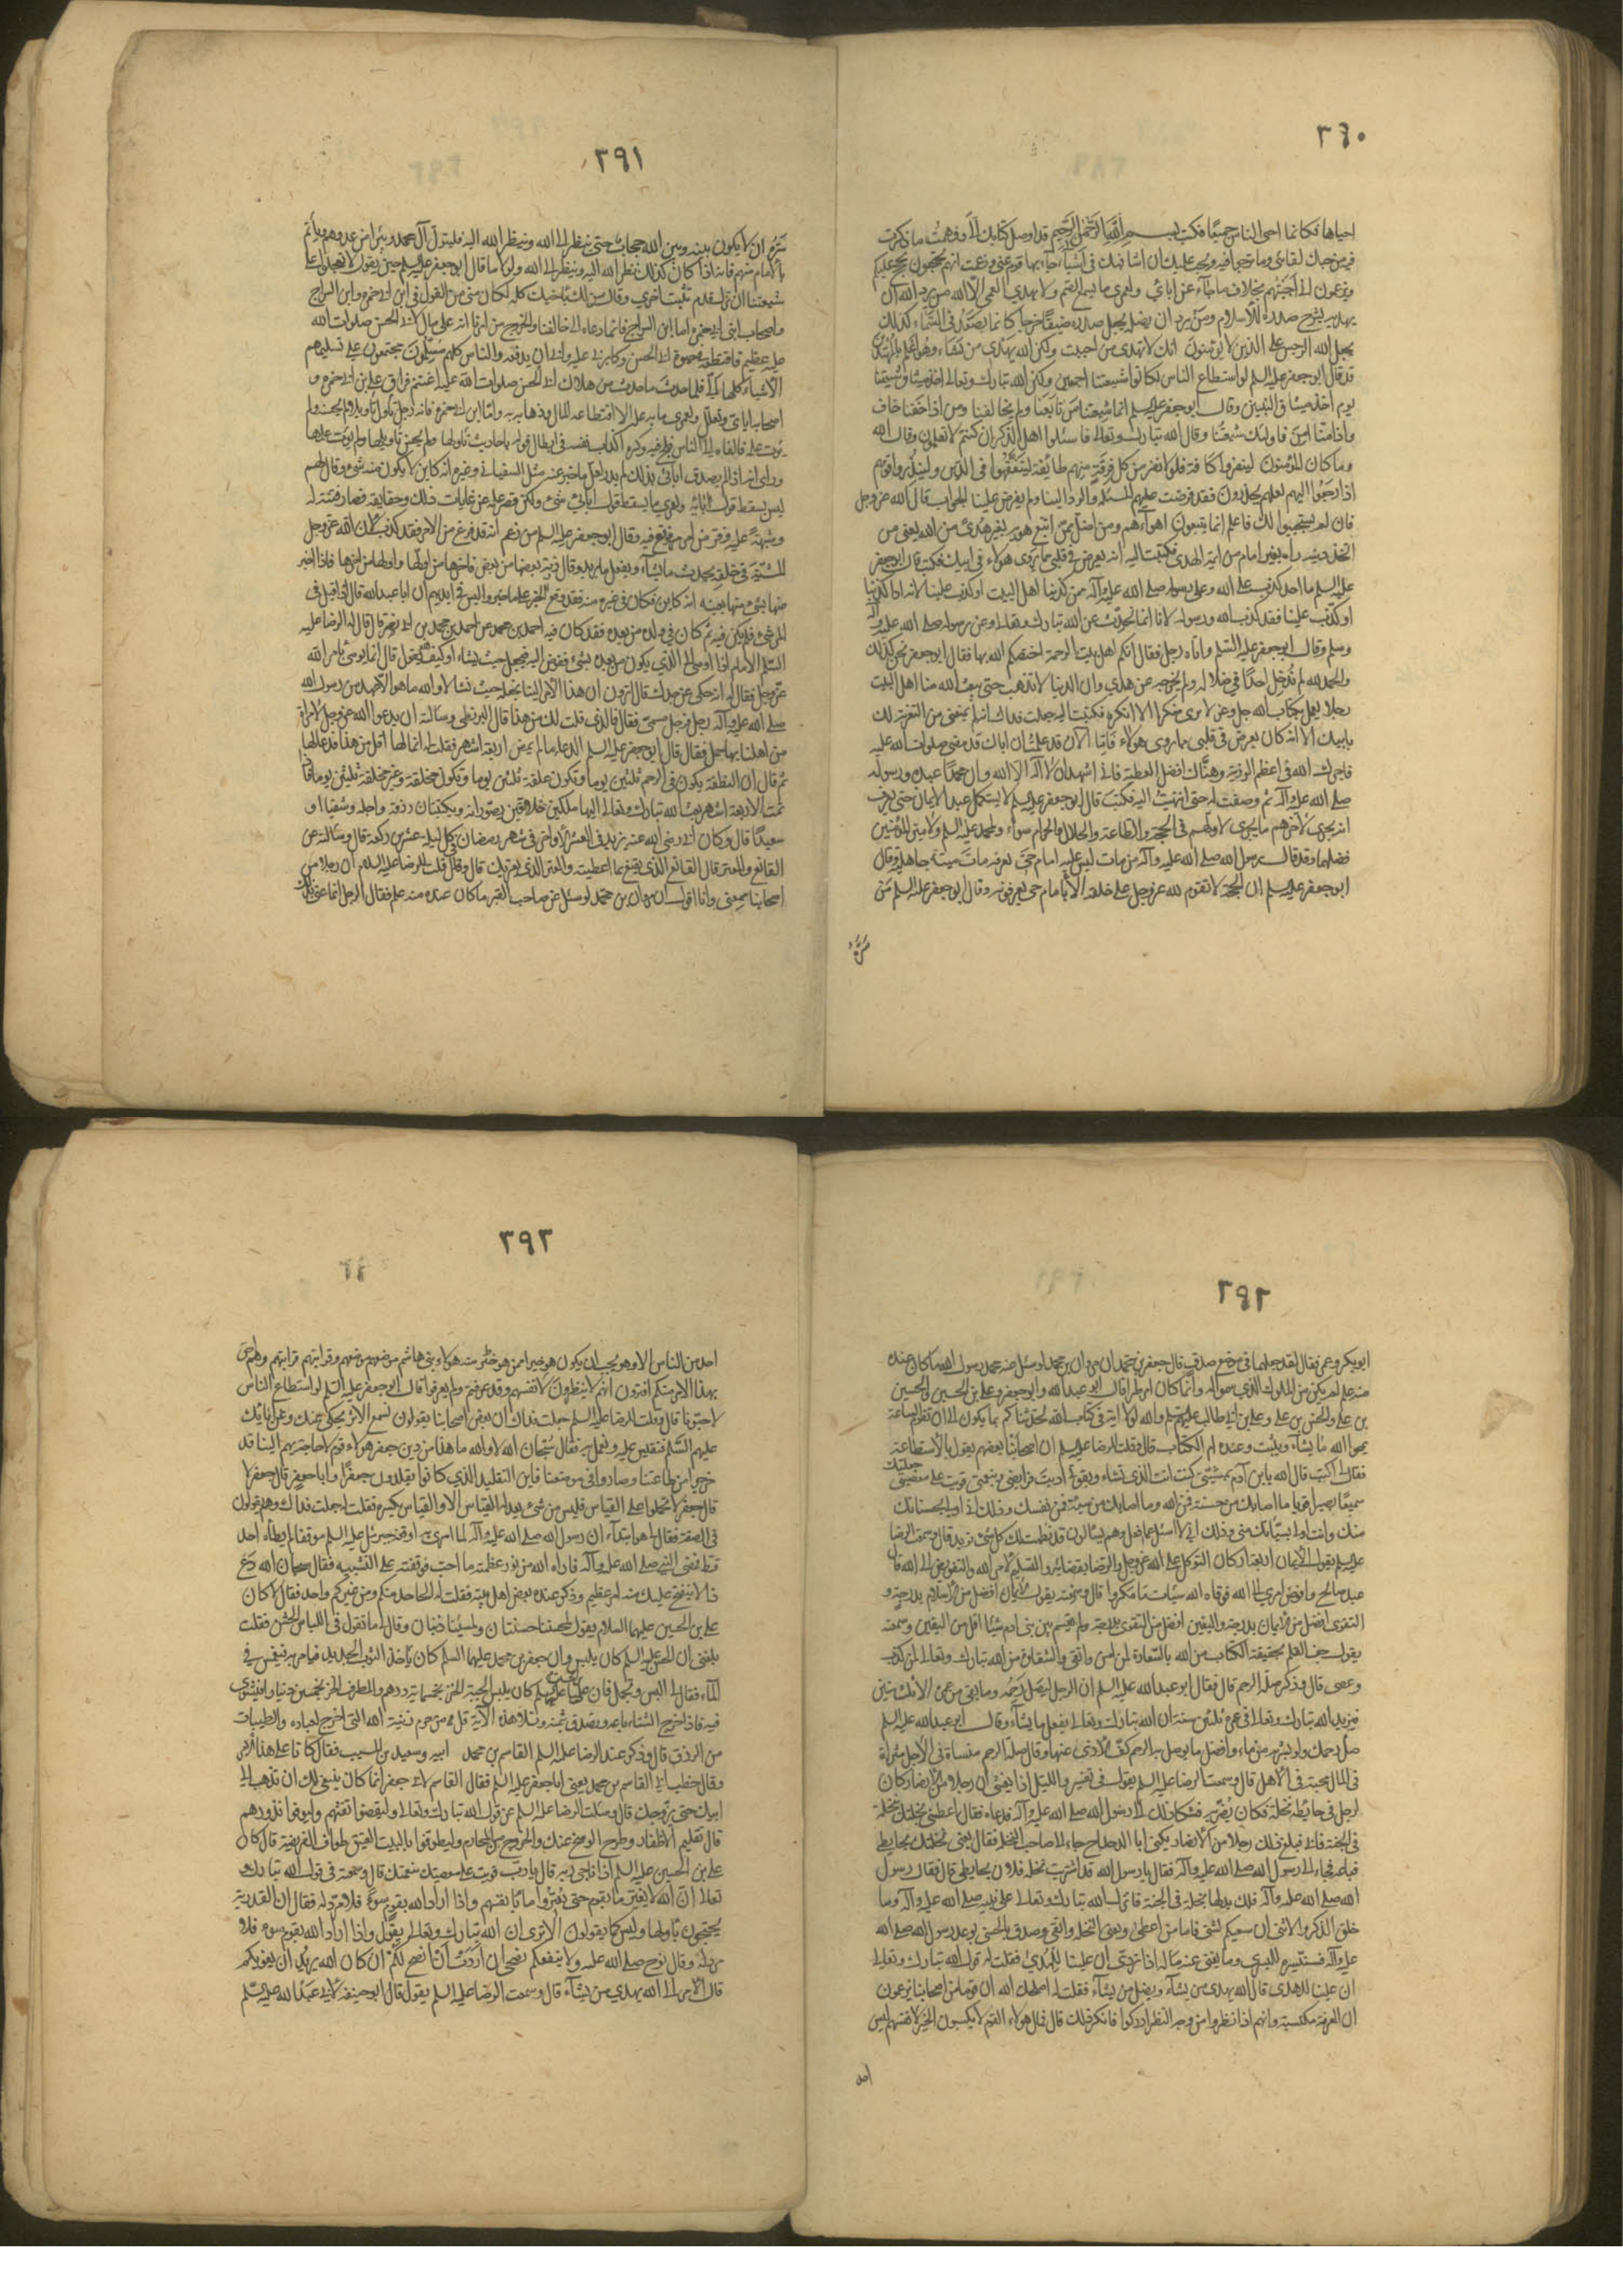 ٣٩٠
احياها فكانما احى الناس جميعا فكتب بسم الله الرحمن الرحيم قد اوصل كتابك الى وفهمت ما ذكرت
فيه من حبك لقائى وما ترجوا فيه ويجب عليك ان اشافهك فى اشياء جاء بها قوم عنى وزعمت انهم يحتجون بحجج عليكم
ويزعمون انى اجبتهم بخلاف ما جاء عن ابائى ولعمرى ما يسمع الصم ولا يهدى العمى الا الله من يرد الله ان
يهديه يشرح صدره للاسلام ومن يرد ان يضله يجعل صدره ضيقا حرجا كانما يصعد فى السماء كذلك
يجعل الله الرجس على الذين لا يؤمنون انك لا تهدى من احببت ولكن الله يهدى من يشاء وهو اعلم بالمهتدين
قد قال ابو جعفر عليه السلم لو استطاع الناس لكانوا شيعتنا اجمعين ولكن الله تبارك وتعالى اخذ ميثاق شيعتنا
يوم اخذ ميثاق النبيين وقال ابو جعفر عليه السلم انما شيعتنا من تابعنا ولم يخالفنا ومن اذا خفنا خاف
واذا امنا امن فاولئك شيعتنا وقال الله تبارك وتعالى فاسئلوا اهل الذكر ان كنتم لا تعلمون وقال الله
وما كان المؤمنون لينفروا كافة فلولا نفر من كل فرقة منهم طائفة ليتفقهوا فى الدين ولينذروا قومهم
اذا رجعوا اليهم لعلهم يحذرون فقد فرضت عليهم المسئلة والرد الينا ولم يفرض علينا الجواب قال الله عز وجل
فان لم يستجيبوا لك فاعلم انما يتبعون اهواءهم ومن اضل ممن اتبع هويه بغير هدى من الله يعنى من
اتخذ دينه رايه بغير امام من ائمة الهدى فكتبت اليه انه يعرض فى قلبى مما يروى هؤلاء فى ابيك فكتب قال ابو جعفر
عليه السلم ما احد اكذب على الله وعلى رسوله صلى الله عليه وآله ممن كذبنا اهل البيت او كذب علينا لانه اذا كذبنا
او كذب علينا فقد كذب الله ورسوله لانا انما نحدث عن الله تبارك وتعالى وعن رسوله صلى الله عليه وآله
وسلم وقال ابو جعفر عليه السلم واتاه رجل فقال انكم اهل بيت الرحمة اختصكم الله بها فقال ابو جعفر نحن كذلك
والحمد لله لم ندخل احدا فى ضلالة ولم نخرجه عن هدى وان الدنيا لا تذهب حتى يبعث الله منا اهل البيت
رجلا يعمل بكتاب الله جل وعز لا يرى منكرا الا انكره فكتبت اليه جعلت فداك انه لم يمنعنى من التعزية لك
بابيك الا انه كان يعرض فى قلبى مما يروى هؤلاء فاما الآن فقد علمت ان اباك قد مضى صلوات الله عليه
فاجرك الله فى اعظم الرزية وهناك افضل العطية فانى اشهد ان لا اله الا الله وان محمدا عبده ورسوله
صلى الله عليه وآله ثم وصفت له حتى انتهيت اليه فكتب قال ابو جعفر عليه السلم لا يستكمل عبد الايمان حتى يعرف
انه يجرى لآخرهم ما يجرى لاولهم فى الحجة والطاعة والحلال والحرام سواء ولمحمد عليه السلم ولامير المؤمنين
فضلهما وقد قال رسول الله صلى الله عليه وآله من مات وليس عليه امام حى يعرفه مات ميتة جاهلية وقال
ابو جعفر عليه السلم ان الحجة لا تقوم لله عز وجل على خلقه الا بامام حى يعرفونه وقال ابو جعفر عليه السلم من
سره
٣٩١
سره ان لا يكون بينه وبين الله حجاب حتى ينظر الى الله وينظر الله اليه فليتول آل محمد ويبرأ من عدوهم ويأتم
بالامام منهم فانه اذا كان كذلك نظر الله اليه ونظر الى الله ولولا ما قال ابو جعفر عليه السلم حين يقول لا تعجلوا على
شيعتنا ان تزل قدم تثبت اخرى وقال من لك باخيك كله لكان منى من القول فى ابن ابى حمزه وابن السراج
واصحاب ابن ابى حمزه اما ابن السراج فانما دعاه الى مخالفتنا والخروج من امرنا انه عدى على مال لابى الحسن صلوات الله
عليه عظيم فاقتطعه فى حيوة ابى الحسن وكابرنى عليه وابى ان يدفعه والناس كلهم مسلمون مجتمعون على تسليمهم
الاشياء كلها الى فلما حدث ما حدث من هلاك ابى الحسن صلوات الله عليه اغتنم فراق على بن ابى حمزه و
اصحابه اياى وتعلل ولعمرى ما به من علة الا اقتطاعه المال وذهابه به واما ابن ابى حمزه فانه رجل تاول تاويلا لم يحسنه ولم
يؤت علمه فالقاه الى الناس فلج فيه وكره اكذاب نفسه فى ابطال قوله باحاديث تاولها ولم يحسن تاويلها ولم يؤت علمها
وراى انه اذا لم يصدق اباى بذلك لم يدر لعل ما خبر عنه مثل السفيانى وغيره انه كاين لا يكون منه شىء وقال لهم
ليس يسقط قول آبائه ولعمرى ما يسقط قول اباى شىء ولكن قصر علمه عن غايات ذلك وحقايقه فصار فتنة له
وشبهة عليه وفر من امر فوقع فيه وقال ابو جعفر عليه السلم من زعم انه قد فرغ من الامر فقد كذب لان لله عز وجل
المشية فى خلقه يحدث ما يشاء ويفعل ما يريد وقال ذرية بعضها من بعض فآخرها من اولها واولها من آخرها فاذا اخبر
عنها بشىء منها بعينه انه كاين فكان فى غيره منه فقد وقع الخبر على ما اخبروا اليس فى ايديهم ان ابا عبد الله قال اذا قيل فى
المرء شىء فلم يكن فيه ثم كان فى ولده من بعده فقد كان فيه احمد بن محمد عن احمد بن محمد بن ابى نصر قال قال لى الرضا عليه
السلم الامام اذا اوصى الى الذى يكون من بعده بشىء ففوض اليه فيجعله حيث يشاء او كيف هو قال انما يوصى بامر الله
عز وجل فقال له انه حكى عن جدك قال اترون ان هذا الامر الينا نجعله حيث نشاء لا والله ما هو الا عهد من رسول الله
صلى الله عليه وآله رجل فرجل مسمى فقال فالذى قلت لك من هذا قال البزنطى وسالته ان يدعو الله عز وجل لامراة
من اهلنا بها حمل فقال قال ابو جعفر عليه السلم الدعاء ما لم يمض اربعة اشهر فقلت له انما لها اقل من هذا فدعا لها
ثم قال ان النطفة يكون فى الرحم ثلثين يوما وتكون علقة ثلثين يوما وتكون مخلقة وغير مخلقة ثلثين يوما فاذا
تمت الاربعة اشهر بعث الله تبارك وتعالى اليها ملكين خلاقين يصورانه ويكتبان رزقه واجله وشقيا او
سعيدا قال وكان ابى رضى الله عنه يزيد فى العشر الاواخر فى شهر رمضان فى كل ليلة عشرين ركعة قال وسالته عن
القانع والمعتر قال القانع الذى يقنع بما اعطيته والمعتر الذى يعتريك قال وقال قلت للرضا عليه السلم ان رجلا من
اصحابنا سمعنى وانا اقول ان مروان بن محمد لو سئل عنه صاحب القبر ما كان عنده منه علم فقال الرجل انما عنى بذلك
٣٩٢
ابو بكر وعمر فقال لقد جعلهما فى موضع صدق قال جعفر بن محمد ان مروان بن محمد لو سئل عنه محمد رسول الله ما كان عنده
منه علم لم يكن من الملوك الذين سموا له وانما كان امر طرا قال ابو عبد الله وابو جعفر وعلى بن الحسين والحسين
بن على والحسن بن على وعلى بن ابى طالب عليهم السلم والله لولا اية فى كتاب الله لحدثناكم بما يكون الى ان تقوم الساعة
يمحوا الله ما يشاء ويثبت وعنده ام الكتاب قال وقلت للرضا عليه السلم ان اصحابنا بعضهم يقول بالاستطاعة
فقال لى اكتب قال الله يا ابن آدم بمشيتى كنت انت الذى تشاء وبقوتى اديت فرايضى وبنعمتى قويت على معصيتى جعلتك
سميعا بصيرا قويا ما اصابك من حسنة فمن الله وما اصابك من سيئة فمن نفسك وذلك انى اولى بحسناتك
منك وانت اولى بسيئاتك منى وذلك انى لا اسئل عما افعل وهم يسئلون قد نظمت لك كل شىء تريد قال وسمعت الرضا
عليه السلم يقول الايمان اربعة اركان التوكل على الله عز وجل والرضا بقضائه والتسليم لامر الله والتفويض الى الله قال
عبد صالح وافوض امرى الى الله فوقاه الله سيئات ما مكروا قال وسمعته يقول الايمان افضل من الاسلام بدرجة و
التقوى افضل من الايمان بدرجة واليقين افضل من التقوى بدرجة ولم يقسم بين بنى ادم شيئا اقل من اليقين وسمعته
يقول جف القلم بحقيقة الكتاب من الله بالسعادة لمن امن واتقى والشقاوة من الله تبارك وتعالى لمن كذب
وعصى قال وذكر صلة الرحم قال فقال ابو عبد الله عليه السلم ان الرجل ليصل رحمه وما بقى من عمره الا ثلث سنين
فيزيد الله تبارك وتعالى فى عمره ثلثين سنة ان الله تبارك وتعالى يفعل ما يشاء وقال ابو عبد الله عليه السلم
صل رحمك ولو بشربة من ماء وافضل ما يوصل به الرحم كف الاذى عنها وقال صلة الرحم منساة فى الاجل مثراة
فى المال محبة فى الاهل قال وسمعت الرضا عليه السلم يقول فى تفسير والليل اذا يغشى ان رجلا من الانصار كان
لرجل فى حايطه نخلة فكان يضر به فشكا ذلك الى رسول الله صلى الله عليه وآله فدعاه فقال اعطنى نخلتك بنخلة
فى الجنة فابى فبلغ ذلك رجلا من الانصار يكنى ابا الدحداح جاء الى صاحب النخلة فقال بعنى نخلتك بحايطى
فباعه فجاء الى رسول الله صلى الله عليه وآله فقال يا رسول الله قد اشتريت نخلة فلان بحايطى قال فقال رسول
الله صلى الله عليه وآله فلك بدلها نخلة فى الجنة فانزل الله تبارك وتعالى على نبيه صلى الله عليه وآله وما
خلق الذكر والانثى ان سعيكم لشتى فاما من اعطى يعنى النخلة واتقى وصدق بالحسنى بوعد رسول الله صلى الله
عليه وآله فسنيسره لليسرى وما يغنى عنه ماله اذا تردى ان علينا للهدى فقلت له قول الله تبارك وتعالى
ان علينا للهدى قال الله يهدى من يشاء ويضل من يشاء فقلت له اصلحك الله ان قوما من اصحابنا يزعمون
ان المعرفة مكتسبة وانهم اذا نظروا من وجه النظر ادركوا فانكر ذلك قال فما لهؤلاء القوم لا يكسبون الخير لانفسهم ليس
احد
٣٩٣
احد من الناس الا وهو يحب ان يكون هو خيرا ممن هو خير منه هؤلاء بنى هاشم موضعهم موضعهم وقرابتهم قرابتهم وهم احق
بهذا الامر منكم افترون انهم لا ينظرون لانفسهم وقد عرفتم ولم يعرفوا قال ابو جعفر عليه السلم لو استطاع الناس
لاحبونا قال وقلت للرضا عليه السلم جعلت فداك ان بعض اصحابنا يقولون نسمع الاثر يحكى عنك وعن ابائك
عليهم السلم فنقيس عليه ونعمل به فقال سبحان الله لا والله ما هذا من دين جعفر هؤلاء قوم لا حاجة بهم الينا قد
خرجوا من طاعتنا وصاروا فى موضعنا فاين التقليد الذى كانوا يقلدون جعفرا وابا جعفر قال جعفر لا
قال جعفر لا تحملوا على القياس فليس من شىء يعدله القياس الا والقياس يكسره فقلت له جعلت فداك وهم يقولون
فى الصفة فقال لى هو ابتداء ان رسول الله صلى الله عليه وآله لما اسرى به اوقفه جبرئيل عليه السلم موقفا لم يطاه احد
قط فمضى النبى صلى الله عليه وآله فاراه الله من نور عظمته ما احب فوقفته على التشبيه فقال سبحان الله دع
ذا لا ينفتح عليك منه امر عظيم وذكر عنده بعض اهل بيته فقلت له الجاحد منكم ومن غيركم واحد فقال لا كان
على بن الحسين عليهما السلام يقول لمحسننا حسنتان ولمسيئنا ذنبان وقال لى ما تقول فى اللباس الخشن فقلت
بلغنى ان الحسن عليه السلم كان يلبس وان جعفر بن محمد عليهما السلم كان ياخذ الثوب الجديد فيامر به فيغمس فى
الماء فقال لى البس وتجمل فان على بن الحسين عليه السلم كان يلبس الجبة الخز بخمسماية درهم والمطرف الخز بخمسين دينارا فيشتوى
فيه فاذا خرج الشتاء باعه وتصدق بثمنه وتلا هذه الآية قل من حرم زينة الله التى اخرج لعباده والطيبات
من الرزق قال وذكر عند الرضا عليه السلم القاسم بن محمد ابيه وسعيد بن المسيب فقال كانا على هذا الامر
وقال خطب ابى القاسم بن محمد يعنى ابا جعفر عليه السلم فقال القاسم لابى جعفر انما كان ينبغى لك ان تذهب الى
ابيك حتى يزوجك قال وسئلت الرضا عليه السلم عن قول الله تبارك وتعالى وليقضوا تفثهم وليوفوا نذورهم
قال تقليم الاظفار وطرح الوسخ عنك والخروج من الاحرام وليطوفوا بالبيت العتيق طواف الفريضة قال كان
على بن الحسين عليه السلم اذا ناجى ربه قال يا رب قويت على معصيتك بنعمتك قال وسمعته فى قول الله تبارك
تعالى ان الله لا يغير ما بقوم حتى يغيروا ما بانفسهم واذا اراد الله بقوم سوءا فلا مرد له فقال ان القدرية
يحتجون باولها وليس كما يقولون الا ترى ان الله تبارك وتعالى يقول واذا اراد الله بقوم سوء فلا
مرد له وقال نوح صلى الله عليه ولا ينفعكم نصحى ان اردت ان انصح لكم ان كان الله يريد ان يغويكم
قال الامر الى الله يهدى من يشاء قال وسمعت الرضا عليه السلم يقول قال ابو حنيفه لابى عبد الله عليه السلم